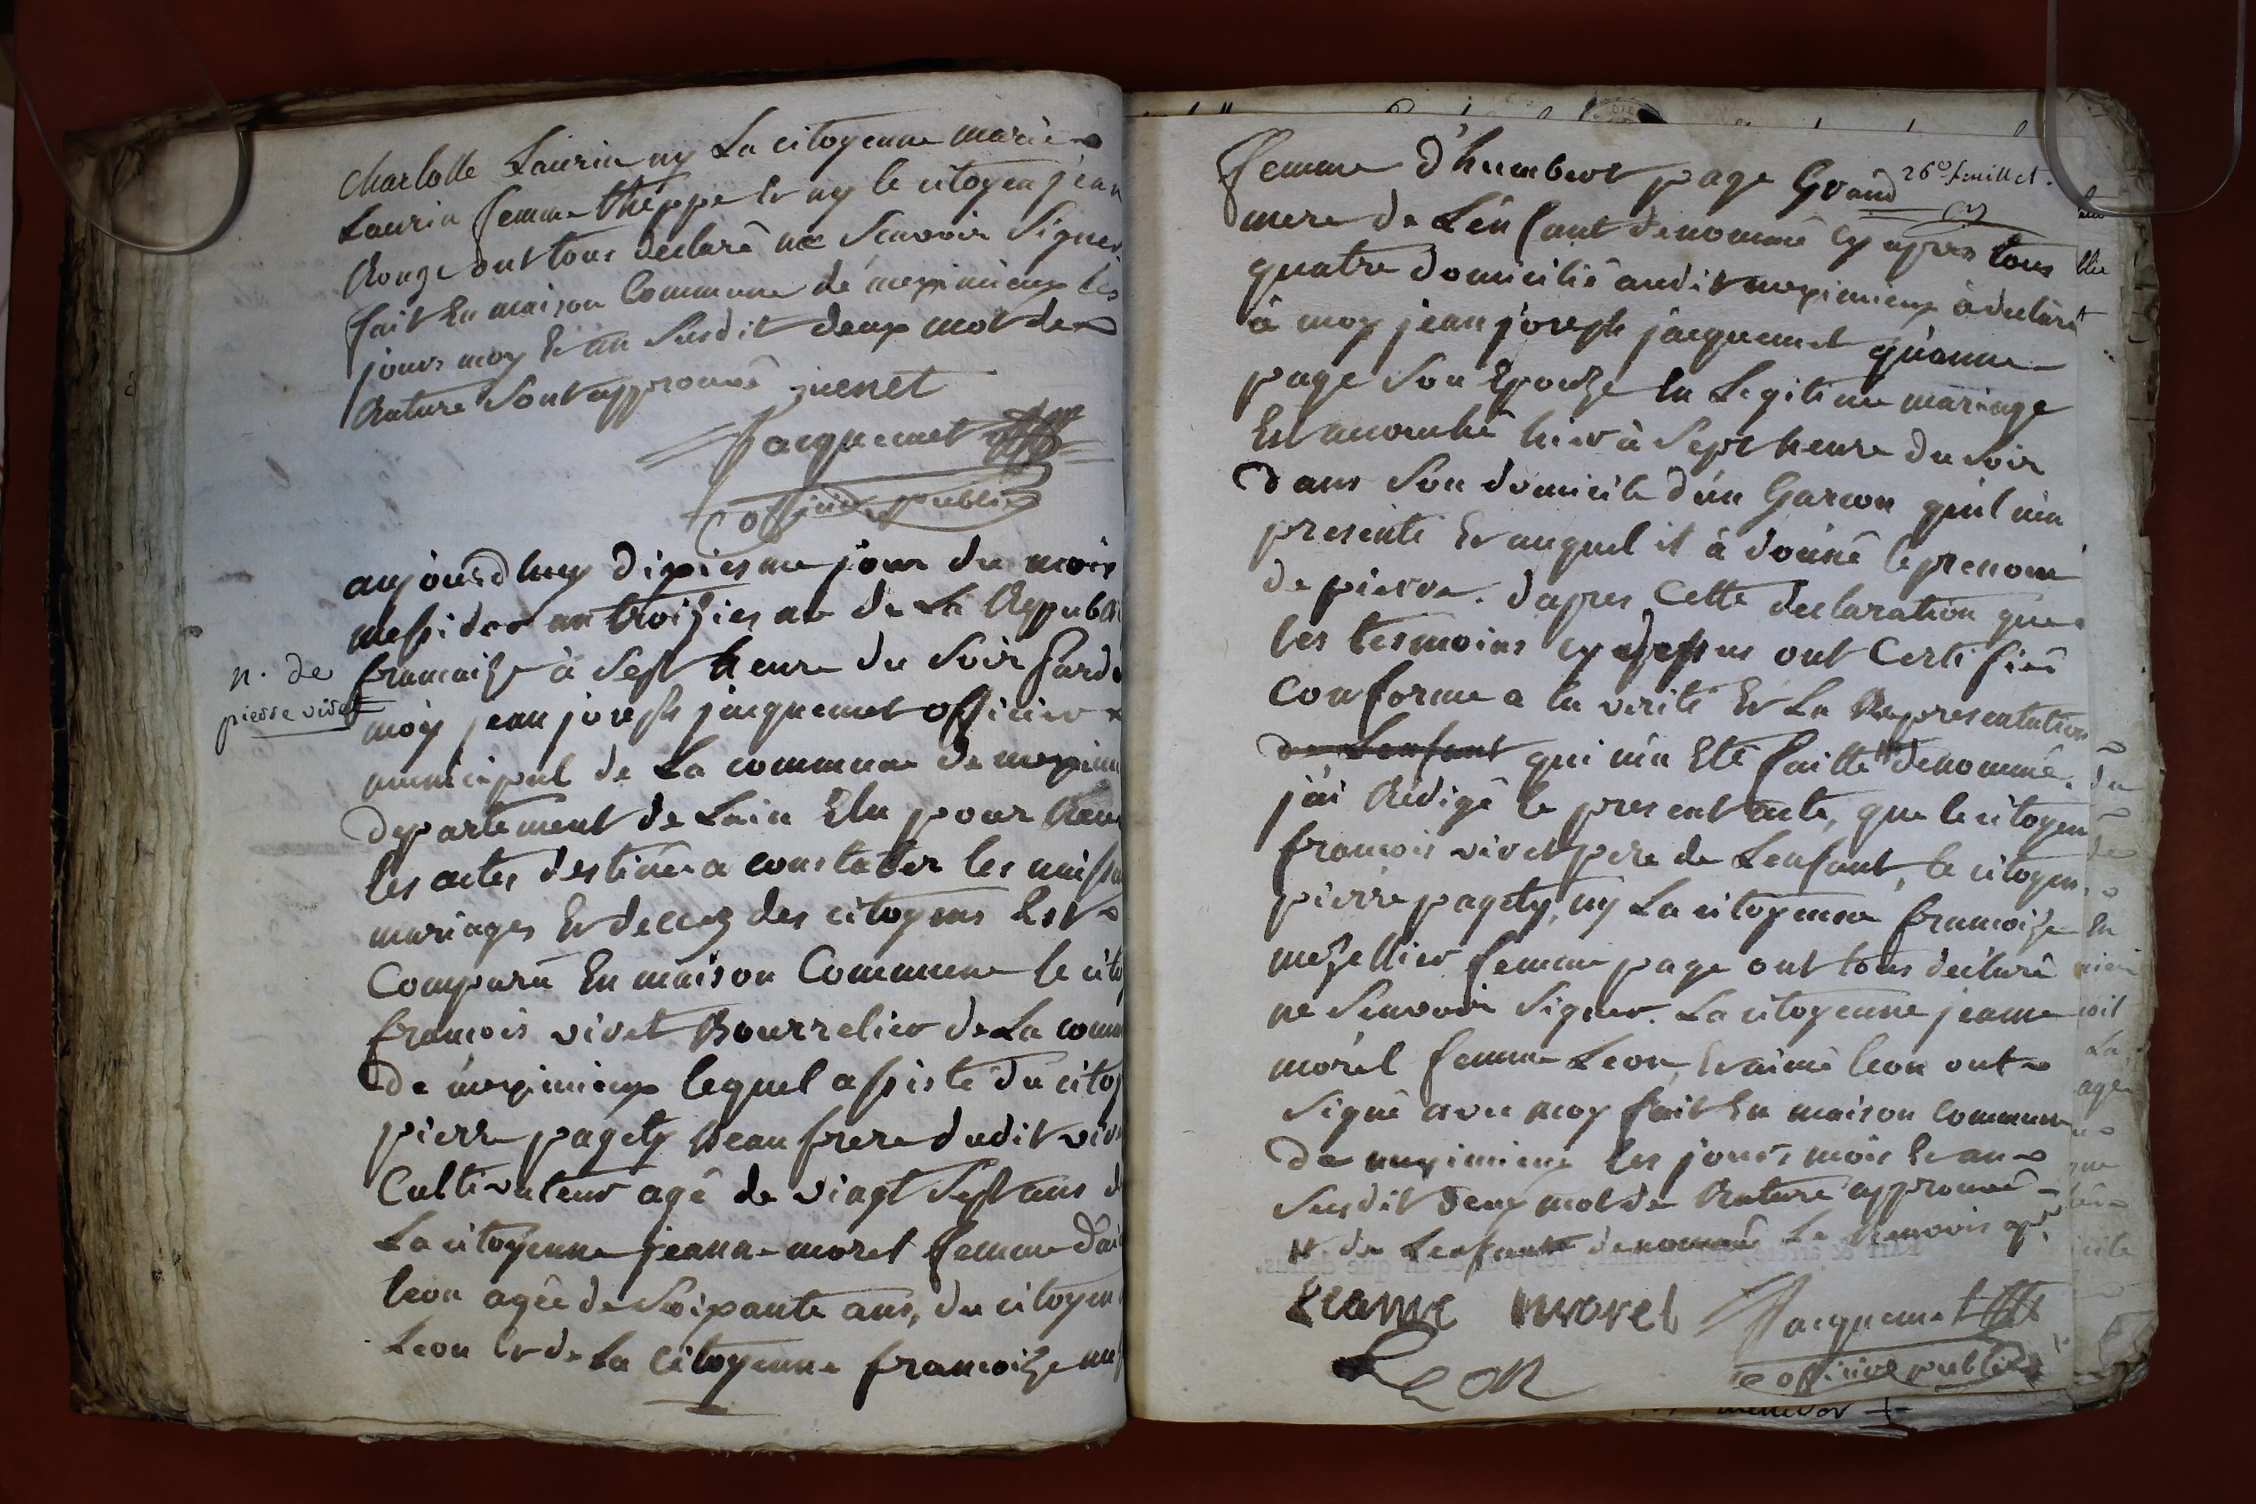 Charlotte Laurin ny La citoyenne marie
Laurin femme théppe Er ny le citoyen jean
Rouge ont tous declaré ne Scavoir Signer
fait En maison Commune de meximieux les
jours moy Er an Susdit deux mot de
Rature Sont approuvé juenet
Jacquemet
officier public
aujourdhuy dixiesme jour du mois
messidor an troiziesme de La Republi
francaize à Sept heure du Soir Pard
n. de
pierre vivet
moy jean joseph jacquemet officier
municipal de La commune de meximi
departement de Lain Elu pour Rece
les actes destinée a constater les naissa
mariages Er decez des citoyens Est
Comparu En maison Commune le cito
francois vivet Bourrelier de La comm
de meximieux lequel assisté du citoy
pierre pagety Beau frere dudit viv
Cultivateur agé de viagt Sept ans d
La citoyenne jeanne morel femme dai
leon agée de Soixante ans, du citoyen
Leon Er de La citoyenne francoize me
26e feuillet.
femme d'humbert page Grand
mere de Lenfant denommé cy apres tous
quatre domicilié audit meximieux à declaré
à moy jean joseph jacquemet qu'anne
page Son Epouze En Legitime mariage
Est accouché hier à Sept heure du Soir
dans Son domicile d'un Garcon qu'il m'a
presenté Er auquel il à donné le prenom
de pierre. dapres Cette declaration que
les tesmoins cy dessus ont Certifié
Conforme a la verité Er La Representation
de Lenfant qui m'a Eté faitte # denommé.
j'ai Redigé le present acte, que le citoyen
francois vivet pere de Lenfant, le citoyen
pierre pagety, ny La citoyenne francoize
mezellier femme page ont tous declaré
ne Scavoir Signer. La citoyenne jeanne
morel femme Leon, Er aimé leon ont
Signé avec moy fait En maison Commune
de meximieux les jours mois Er an
Susdit deux mot de Rature approuvé
# de Lenfant denommé Le Renvois ap.é
jeanne morel Jacquemet
Leon officier public